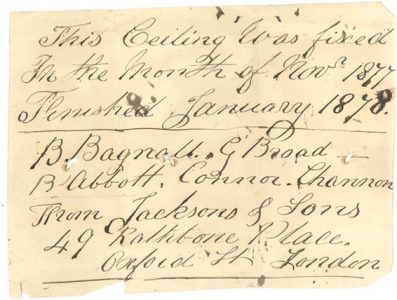 This Ceiling Was fixed
In the Month of Novr. 1877
Finished January 1878.
B. Bagnall. G Broad
B Abbott. Connor. Channon
From Jacksons & Sons
49 Rathbone Place.
Oxford St London